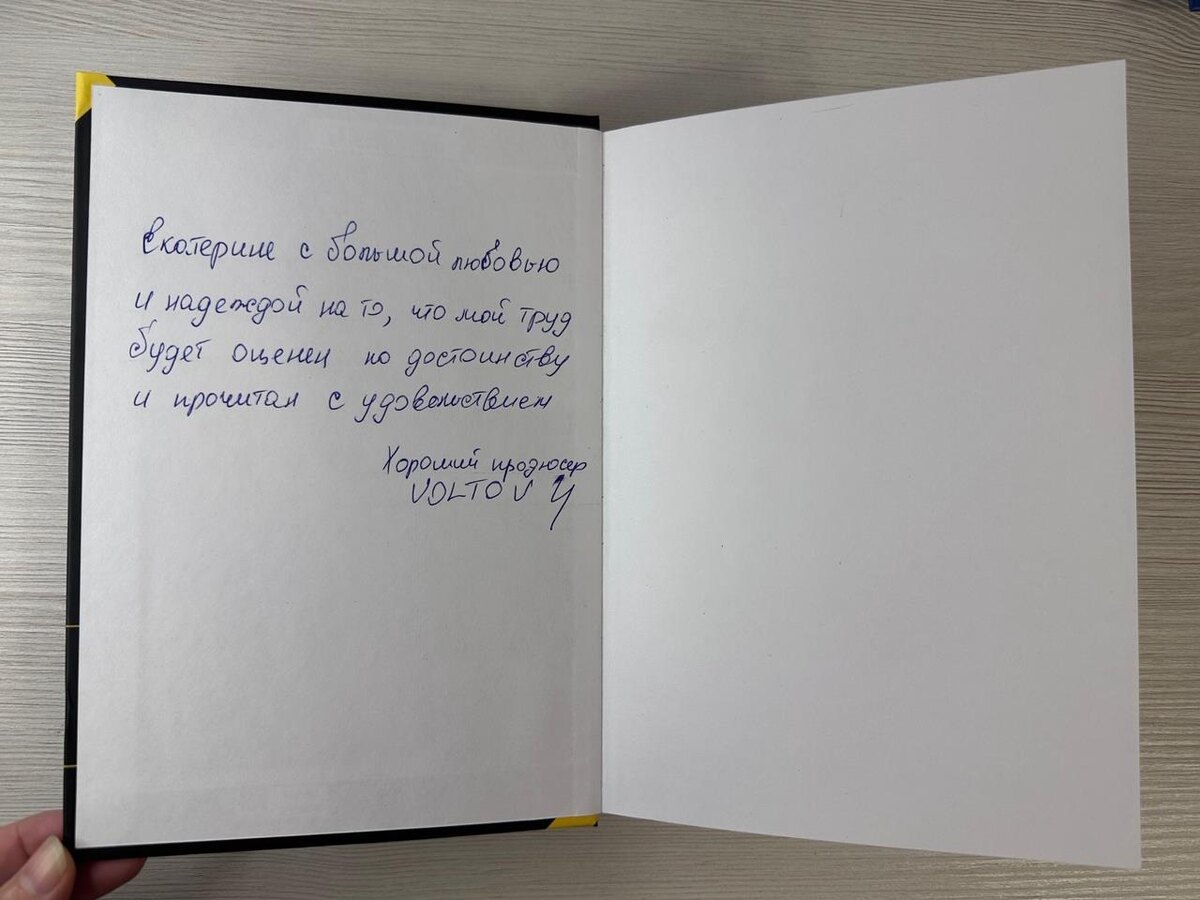 Екатерине с большой любовью
и надеждой на то, что мой труд
будет оценен по достоинству
и прочитан с удовольствием
Хороший продюсер
VOLTOV